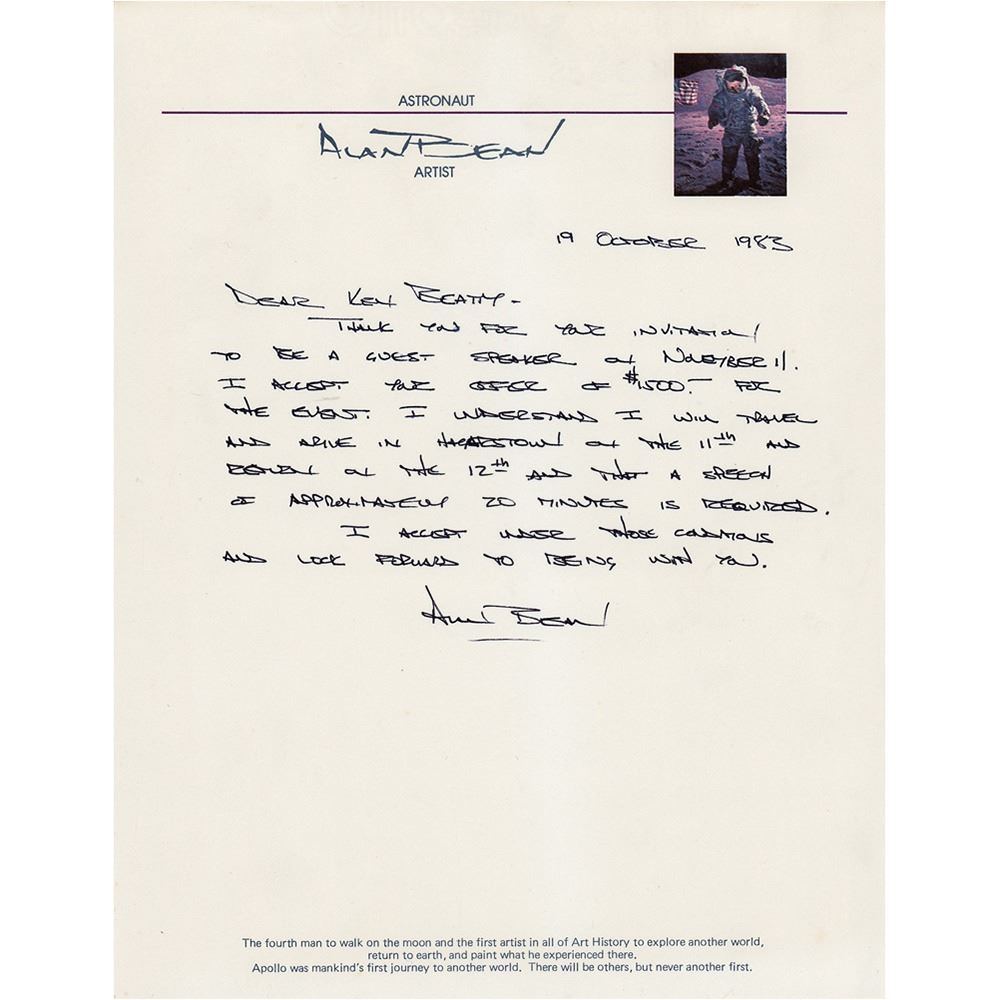 ASTRONAUT
ALAN BEAN
ARTIST
19 OCTOBER 1983
DEAR KEN BEATTY -
THANK YOU FOR YOUR INVITATION
TO BE A GUEST SPEAKER ON NOVEMBER 11.
I ACCEPT YOUR OFFER OF $1,500.- FOR
THE EVENT. I UNDERSTAND I WILL TRAVEL
AND ARIVE IN HAGERSTOWN ON THE 11th AND
RETURN ON THE 12th AND THAT A SPEECH
OF APPROXIMATELY 20 MINUTES IS REQUIRED.
I ACCEPT UNDER THOSE CONDITIONS
AND LOOK FORWARD TO BEING WITH YOU.
ALAN BEAN
The fourth man to walk on the moon and the first artist in all of Art History to explore another world,
return to earth, and paint what he experienced there.
Apollo was mankind's first journey to another world. There will be others, but never another first.